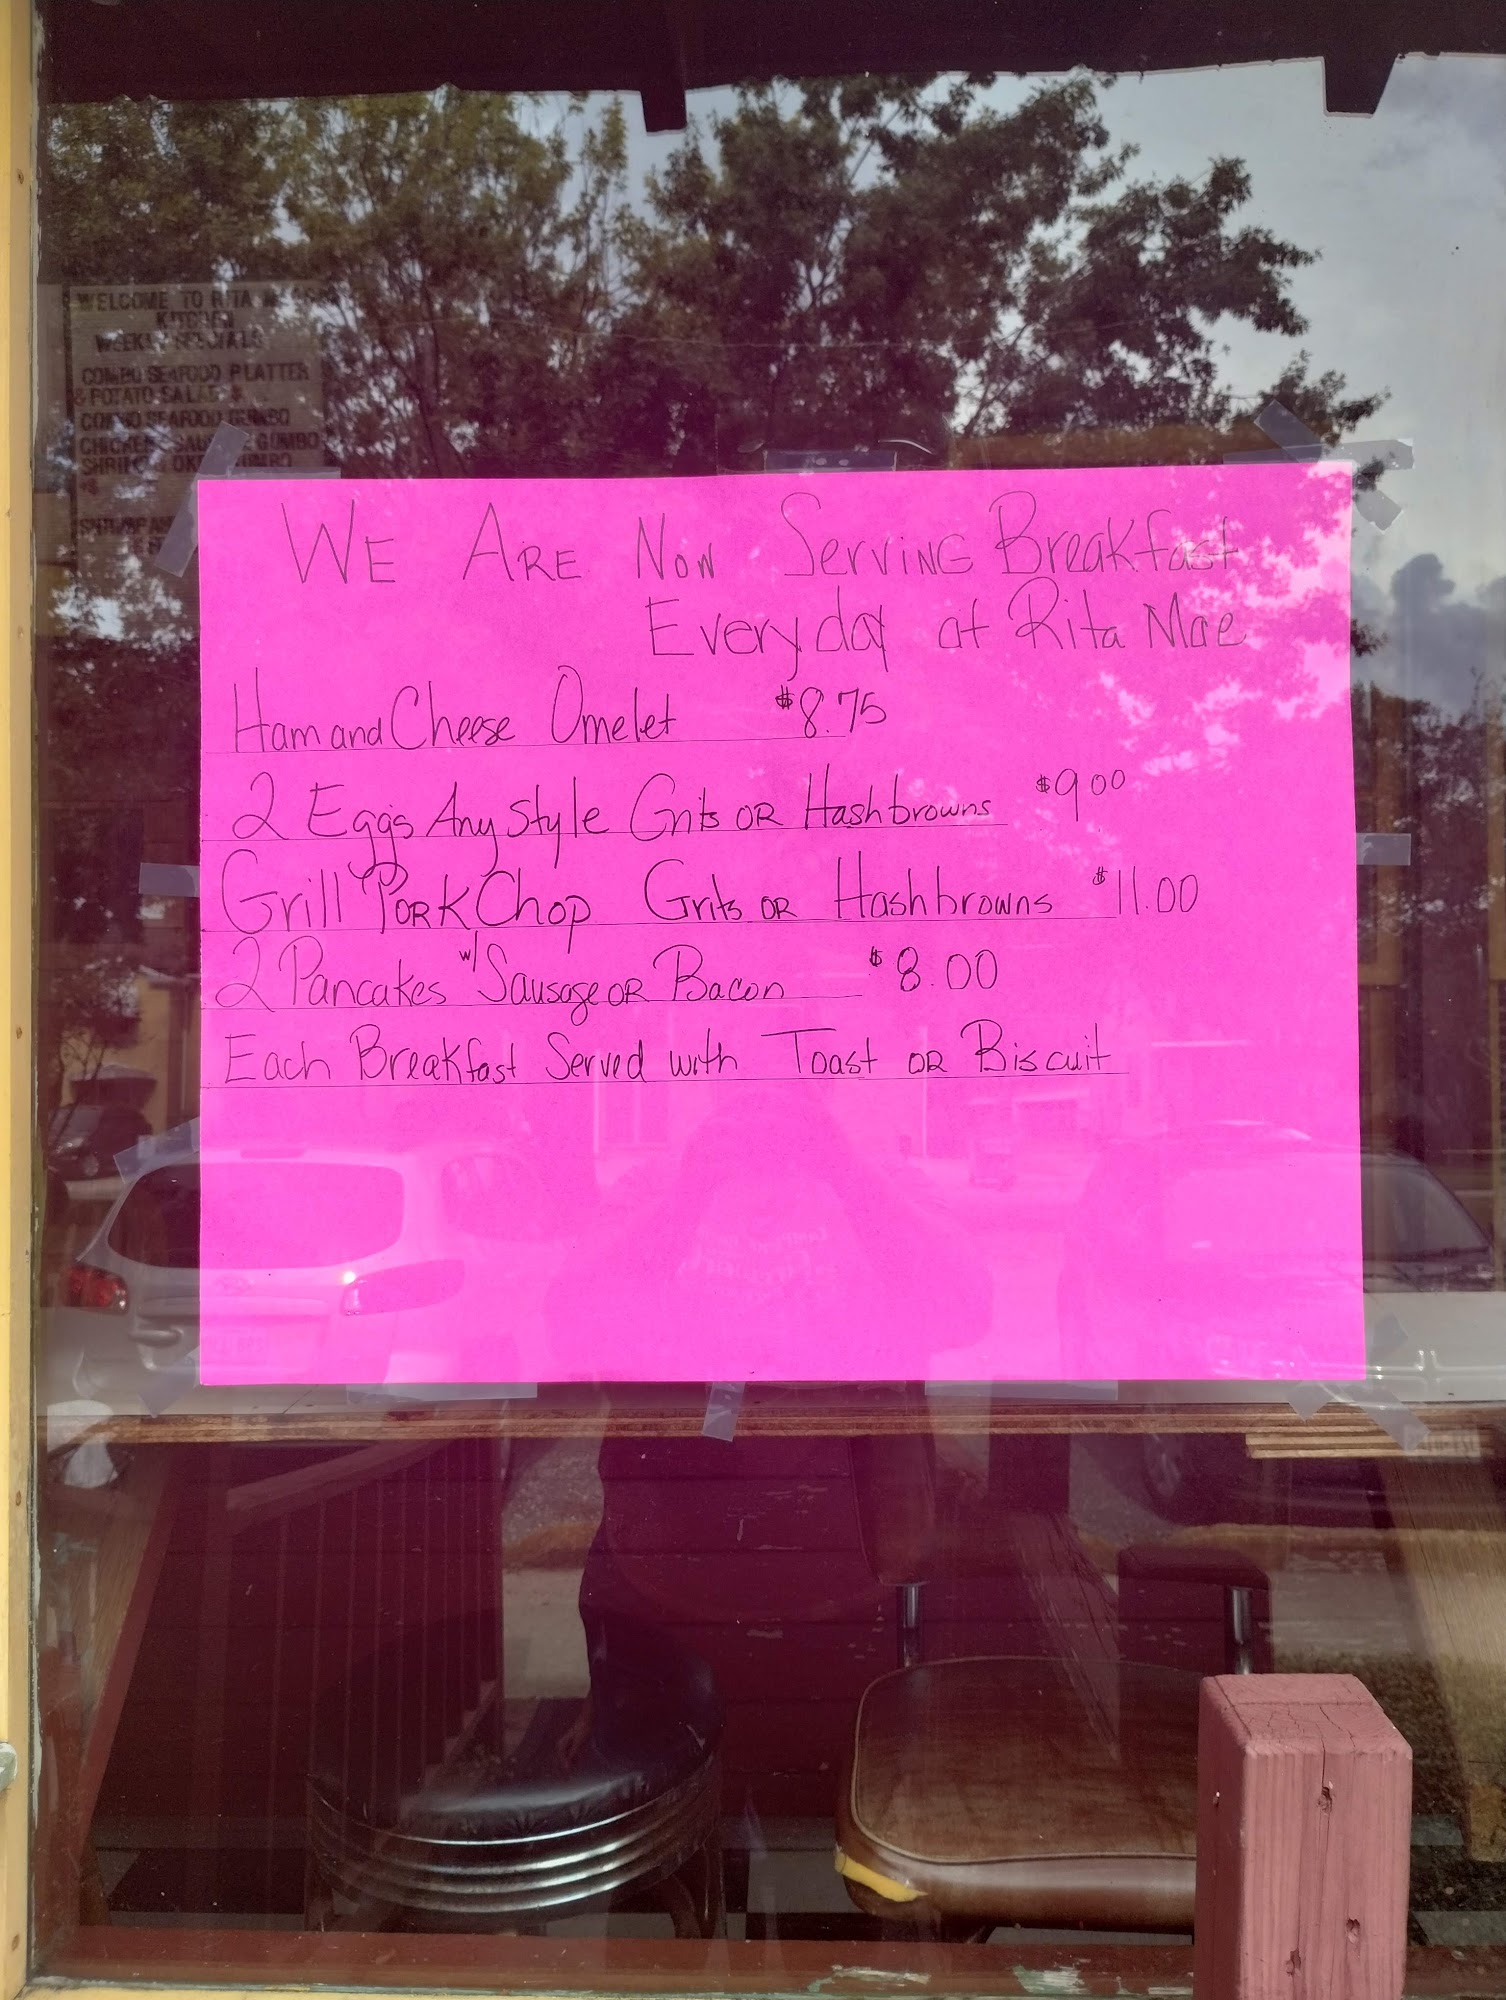 WELCOME TO RITA
KITCHEN
WEEKLY SPECIALS
COMBO SEAFOOD PLATTER
& POTATO SALAD
COMBO SEAFOOD GUMBO
CHICKEN SAUSAGE GUMBO
WE ARE NOW SERVING Breakfast
Everyday at Rita Mae
Ham and Cheese Omelet $8.75
2 Eggs Any Style Grits OR Hashbrowns $9.00
Grill Pork Chop Grits OR Hashbrowns $11.00
2 Pancakes w/ Sausage OR Bacon $8.00
Each Breakfast Served with Toast OR Biscuit